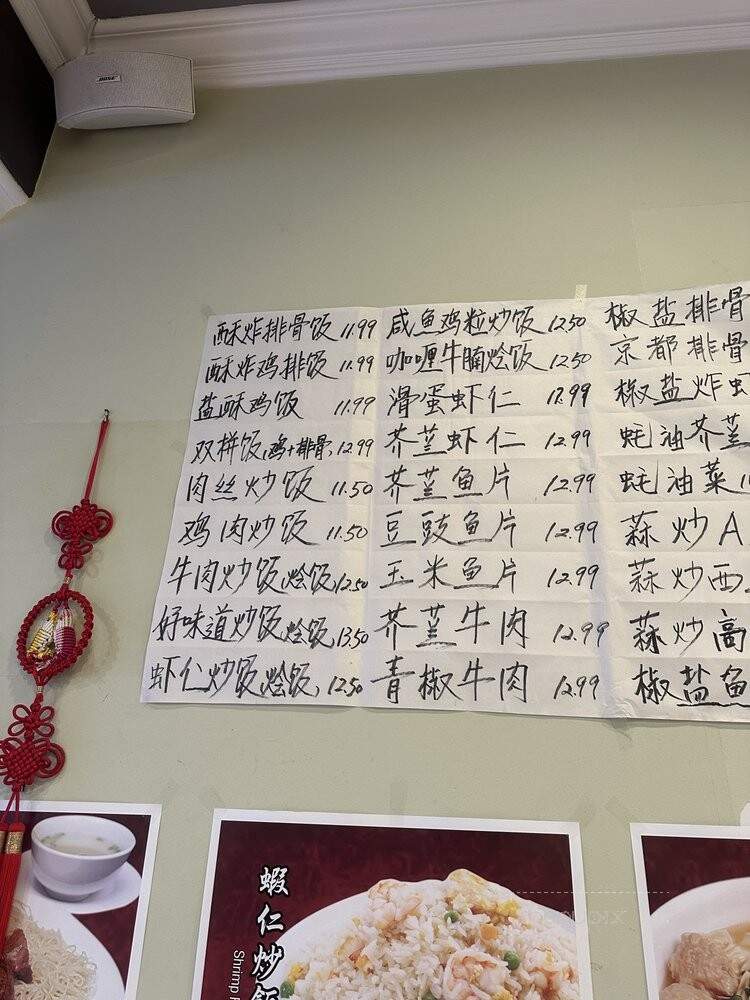 BOSE
酥炸排骨饭 11.99
酥炸鸡排饭 11.99
盐酥鸡饭 11.99
双拼饭(鸡+排骨) 12.99
肉丝炒饭 11.50
鸡肉炒饭 11.50
牛肉炒饭,烩饭, 12.50
好味道炒饭,烩饭, 13.50
虾仁炒饭,烩饭, 12.50
咸鱼鸡粒炒饭 12.50
咖喱牛腩烩饭 12.50
滑蛋虾仁 12.99
芥兰虾仁 12.99
芥兰鱼片 12.99
豆豉鱼片 12.99
玉米鱼片 12.99
芥兰牛肉 12.99
青椒牛肉 12.99
椒盐排骨
京都排骨
椒盐炸虾
蚝油芥兰
蚝油菜
蒜炒A
蒜炒西
蒜炒高
椒盐鱼
蝦仁炒飯
Shrimp